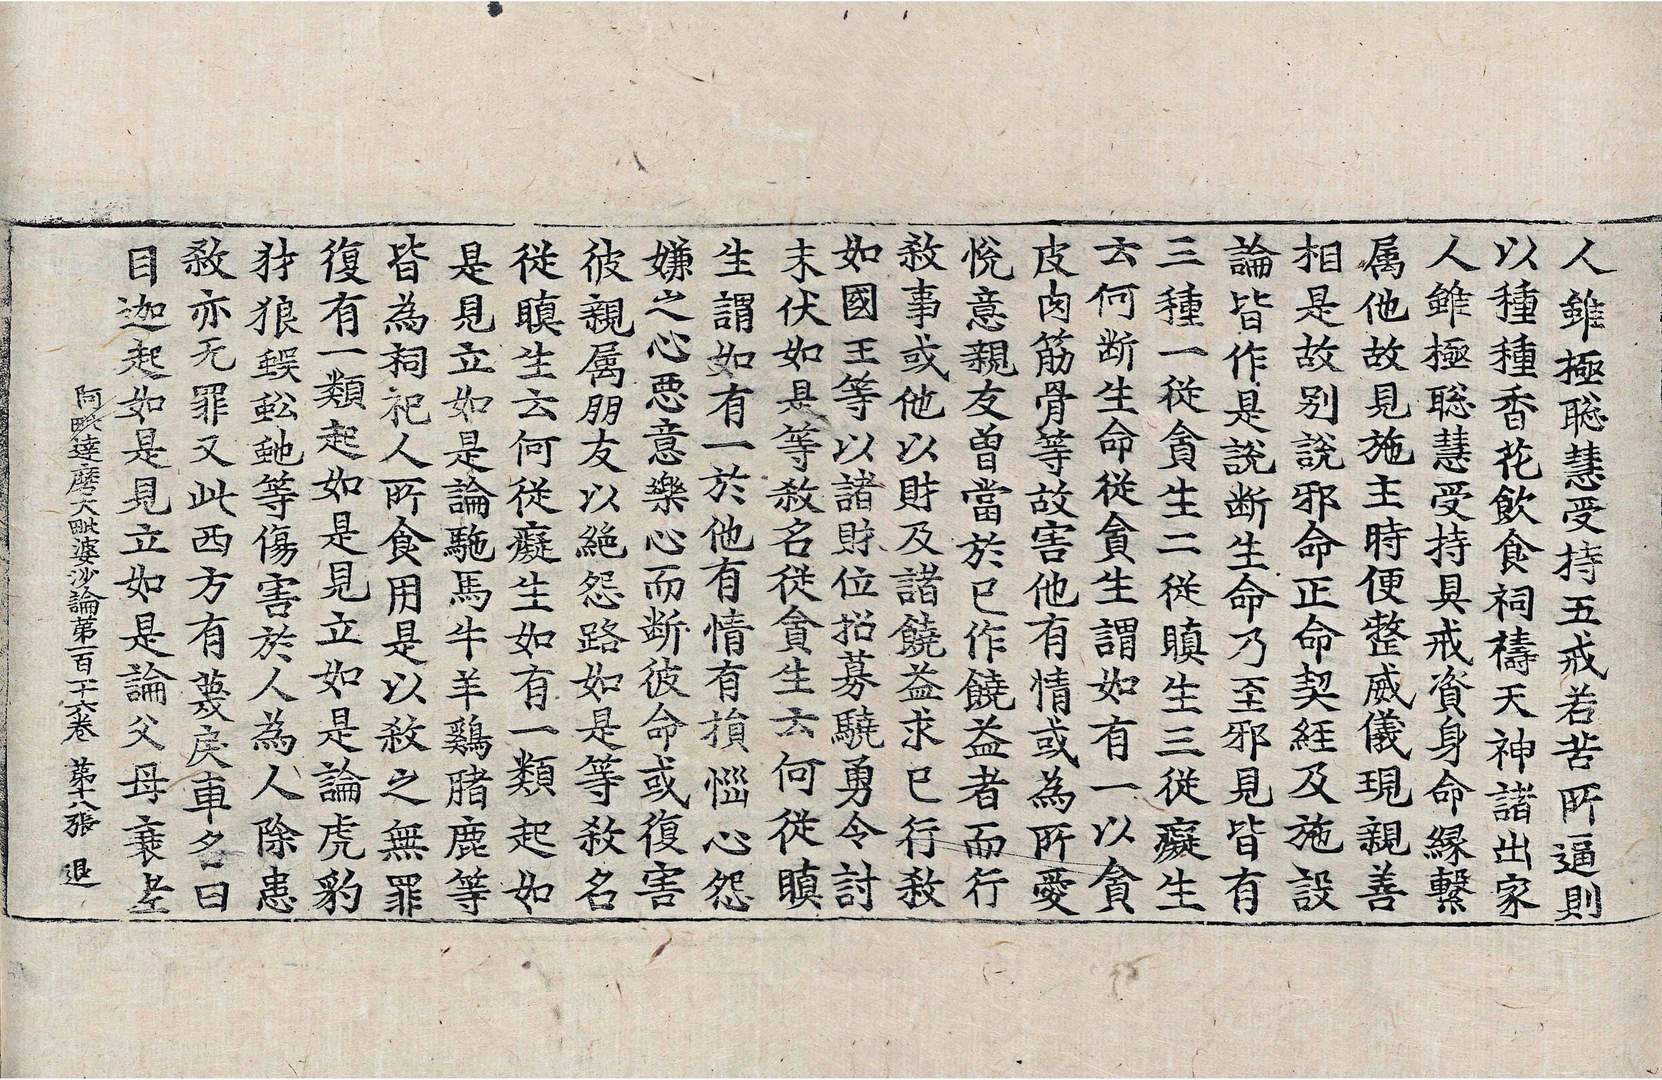 人雖極聡慧受持五戒若苦所逼則
以種種香花飲食祠禱天神諸出家
人雖極聡慧受持具戒資身命縁繫
属他故見施主時便整威儀現親善
相是故别說邪命正命契経及施設
論皆作是說断生命乃至邪見皆有
三種一從貪生二從瞋生三從癡生
云何断生命從貪生謂如有一以貪
皮肉筋骨等故害他有情或為所愛
悅意親友曽當於已作饒益者而行
敘事或他以財及諸饒益求已行敘
如國王等以諸財位招募驍勇令討
未伏如是等敘名從貪生云何從瞋
生謂如有一於他有情有損惱心怨
嫌之心惡意樂心而断彼命或復害
彼親属朋友以絶怨路如是等敘名
從瞋生云何從癡生如有一類起如
是見立如是論駞馬牛羊鷄腤鹿等
皆為祠祀人所食用是以敘之無罪
復有一類起如是見立如是論虎豹
犲狼蜈蚣虵等傷害於人為人除患
敘亦无罪又此西方有蔑戾車名曰
目迦起如是見立如是論父母衰老
阿毗達磨大毗婆沙論第一百十六卷 第十八張 退